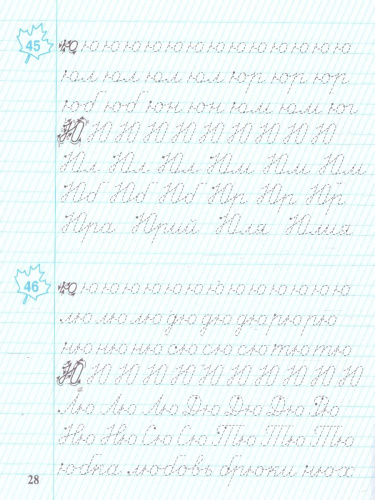 45 ю ю ю ю ю ю ю ю ю ю ю ю ю ю
юл юл юл юл юр юр юр
юб юб юн юн юм юм юг
Ю Ю Ю Ю Ю Ю Ю Ю Ю Ю
Юл Юл Юл Юм Юм Юм
Юб Юб Юб Юр Юр Юр
Юра Юрий Юля Юлия
46 ю ю ю ю ю ю ю ю ю ю ю ю ю ю
лю лю лю дю дю дю рю рю
ню ню ню сю сю сю тю тю
Ю Ю Ю Ю Ю Ю Ю Ю Ю Ю Ю
Лю Лю Лю Дю Дю Дю Рю
Ню Ню Сю Сю Тю Тю Тю
юбка любовь брюки нюх
28